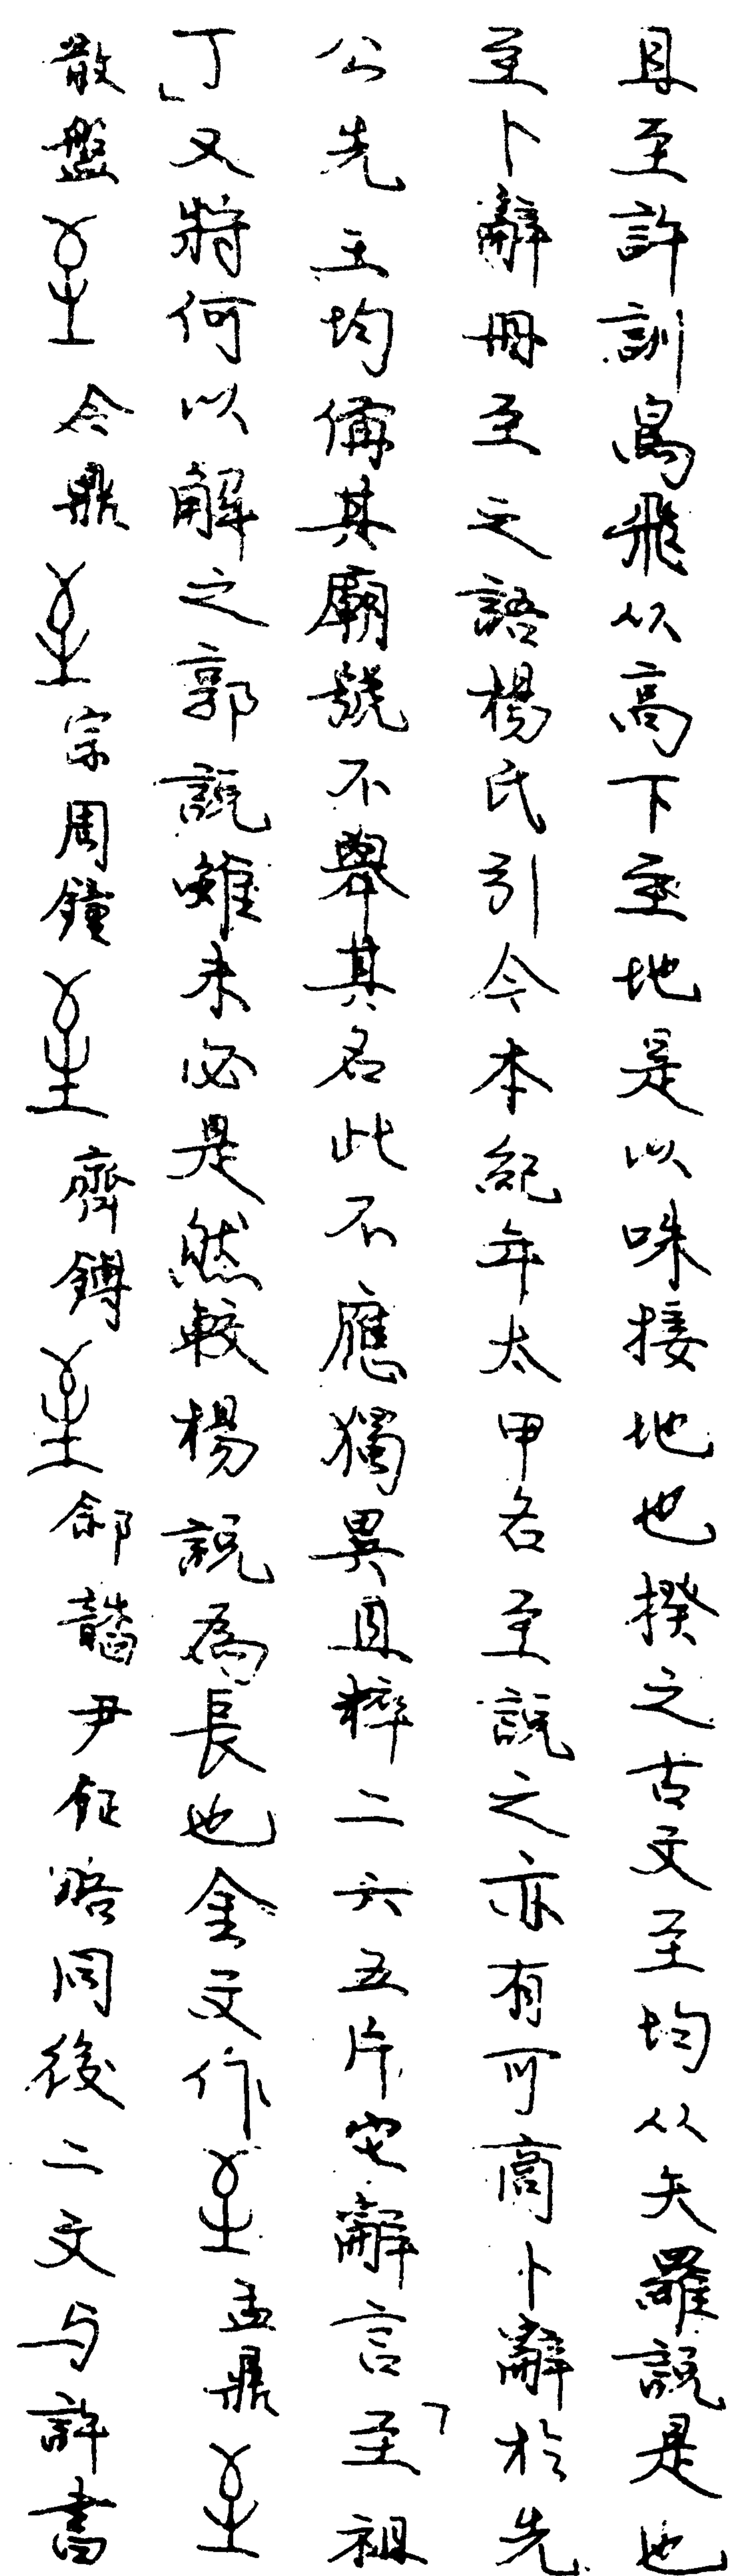 且至許訓鳥飛从高下至地是以咮接地也揆之古文至均从矢羅說是也
至卜辭冊至之語楊氏引今本紀年太甲名至說之亦有可商卜辭於先
公先王均偁其廟號不舉其名此不應獨異且粹二六五片它辭言「至祖
丁」又將何以解之郭說雖未必是然較楊說為長也金文作盂鼎
散盤令鼎宗周鐘齊鎛郐尹鉦略同後二文与許書